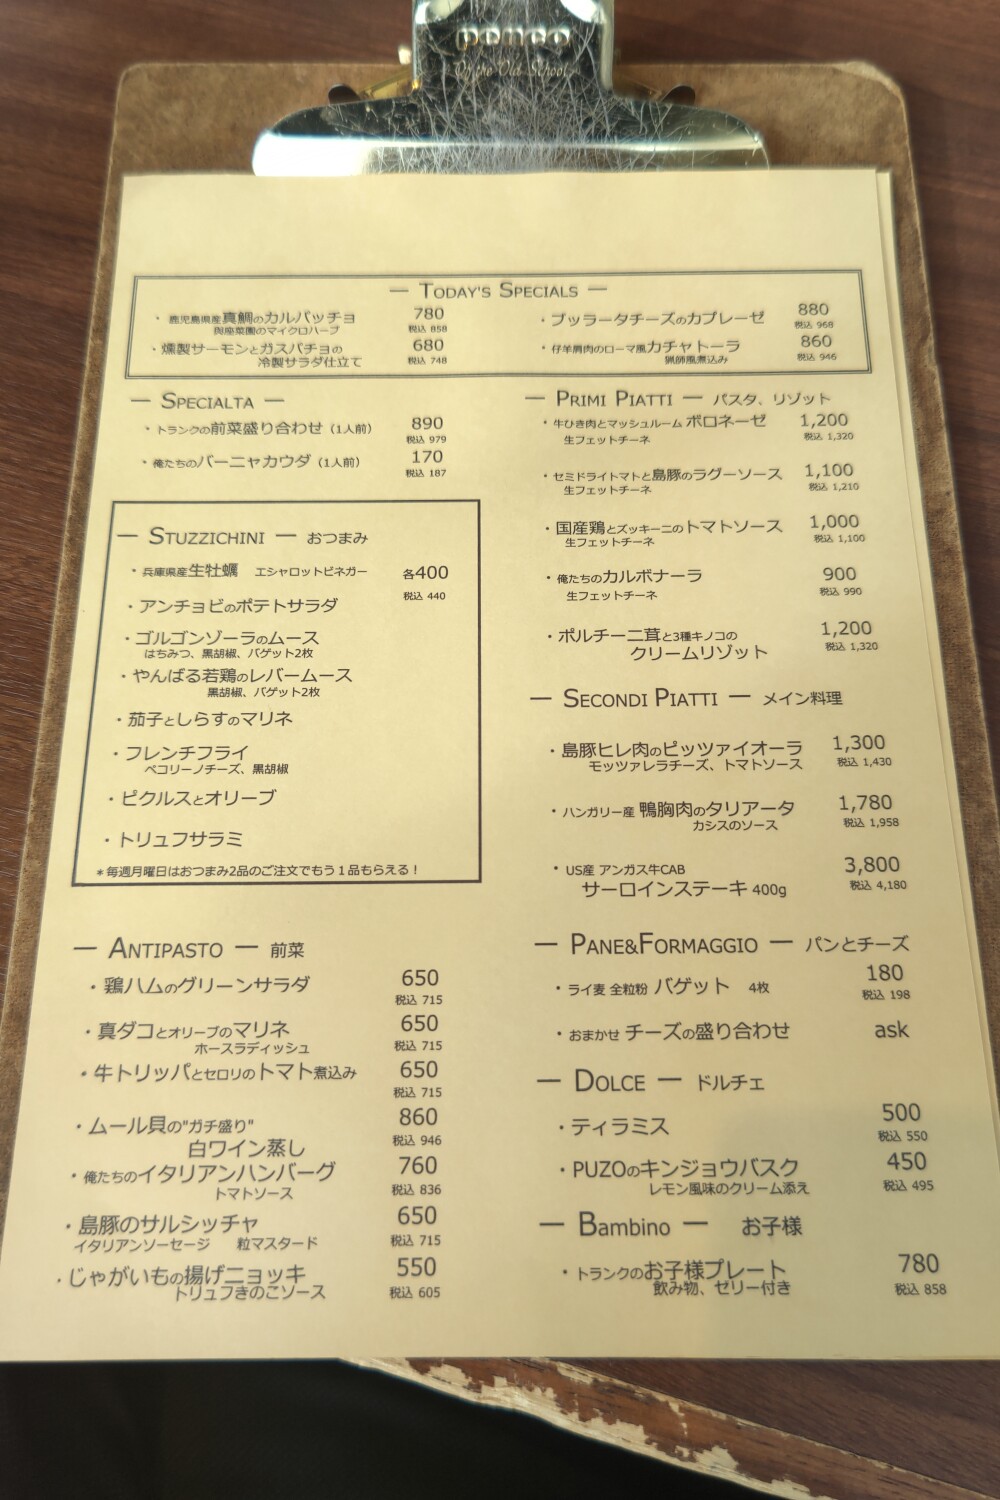 penco
Of the Old School
— TODAY'S SPECIALS —
・鹿児島県産真鯛のカルパッチョ 780
與座菜園のマイクロハーブ 税込 858
・燻製サーモンとガスパチョの 680
冷製サラダ仕立て 税込 748
・ブッラータチーズのカプレーゼ 880
税込 968
・仔羊肩肉のローマ風カチャトーラ 860
猟師風煮込み 税込 946
— SPECIALTA —
・トランクの前菜盛り合わせ（1人前） 890
税込 979
・俺たちのバーニャカウダ（1人前） 170
税込 187
— STUZZICHINI — おつまみ
・兵庫県産生牡蠣 エシャロットビネガー 各400
税込 440
・アンチョビのポテトサラダ
・ゴルゴンゾーラのムース
はちみつ、黒胡椒、バゲット2枚
・やんばる若鶏のレバームース
黒胡椒、バゲット2枚
・茄子としらすのマリネ
・フレンチフライ
ペコリーノチーズ、黒胡椒
・ピクルスとオリーブ
・トリュフサラミ
＊毎週月曜日はおつまみ2品のご注文でもう１品もらえる！
— ANTIPASTO — 前菜
・鶏ハムのグリーンサラダ 650
税込 715
・真ダコとオリーブのマリネ 650
ホースラディッシュ 税込 715
・牛トリッパとセロリのトマト煮込み 650
税込 715
・ムール貝の"ガチ盛り" 860
白ワイン蒸し 税込 946
・俺たちのイタリアンハンバーグ 760
トマトソース 税込 836
・島豚のサルシッチャ 650
イタリアンソーセージ 粒マスタード 税込 715
・じゃがいもの揚げニョッキ 550
トリュフきのこソース 税込 605
— PRIMI PIATTI — パスタ、リゾット
・牛ひき肉とマッシュルーム ボロネーゼ 1,200
生フェットチーネ 税込 1,320
・セミドライトマトと島豚のラグーソース 1,100
生フェットチーネ 税込 1,210
・国産鶏とズッキーニのトマトソース 1,000
生フェットチーネ 税込 1,100
・俺たちのカルボナーラ 900
生フェットチーネ 税込 990
・ポルチーニ茸と3種キノコの 1,200
クリームリゾット 税込 1,320
— SECONDI PIATTI — メイン料理
・島豚ヒレ肉のピッツァイオーラ 1,300
モッツァレラチーズ、トマトソース 税込 1,430
・ハンガリー産 鴨胸肉のタリアータ 1,780
カシスのソース 税込 1,958
・US産 アンガス牛CAB 3,800
サーロインステーキ 400g 税込 4,180
— PANE&FORMAGGIO — パンとチーズ
・ライ麦 全粒粉 バゲット 4枚 180
税込 198
・おまかせ チーズの盛り合わせ ask
— DOLCE — ドルチェ
・ティラミス 500
税込 550
・PUZOのキンジョウバスク 450
レモン風味のクリーム添え 税込 495
— Bambino — お子様
・トランクのお子様プレート 780
飲み物、ゼリー付き 税込 858